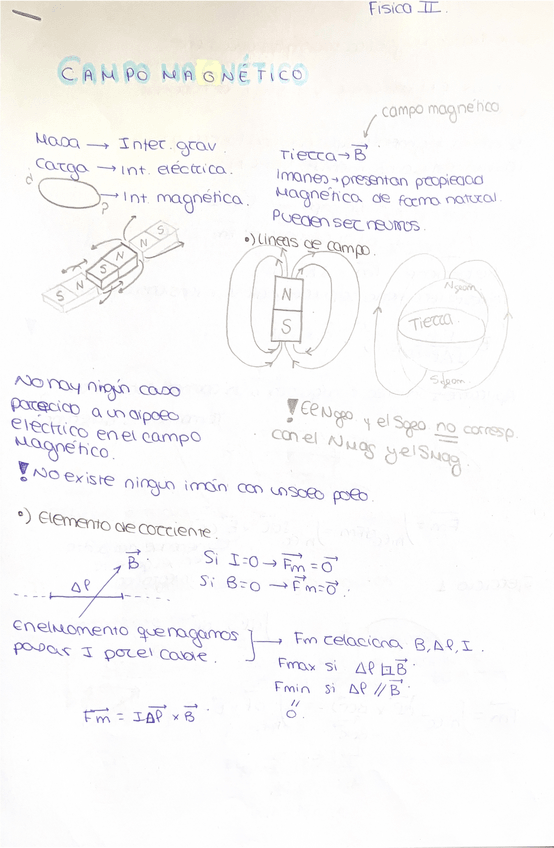 Física II.
CAMPO MAGNÉTICO
Masa → Inter. grav.
Carga → Int. eléctrica.
d
?
→ Int. magnética.
S N
S N
S N
campo magnético
Tierra → B
Imanes → presentan propiedad
Magnética de forma natural.
Pueden ser neutros.
•) Líneas de campo.
N
S
Ngeom
Tierra
Sgeom
No hay ningún caso
parecido a un dipolo
eléctrico en el campo
Magnético.
! El Ngeo y el Sgeo no corresp.
con el NMag y el SMag.
! No existe ningun imán con un solo polo.
•) Elemento de corriente.
B
Δl
Si I=0 → Fm = 0
Si B=0 → Fm = 0.
En el momento que hagamos
pasar I por el cable.
→ Fm relaciona B, Δl, I.
Fmax si Δl ⊥ B
Fmin si Δl // B
"
0.
Fm = IΔl × B